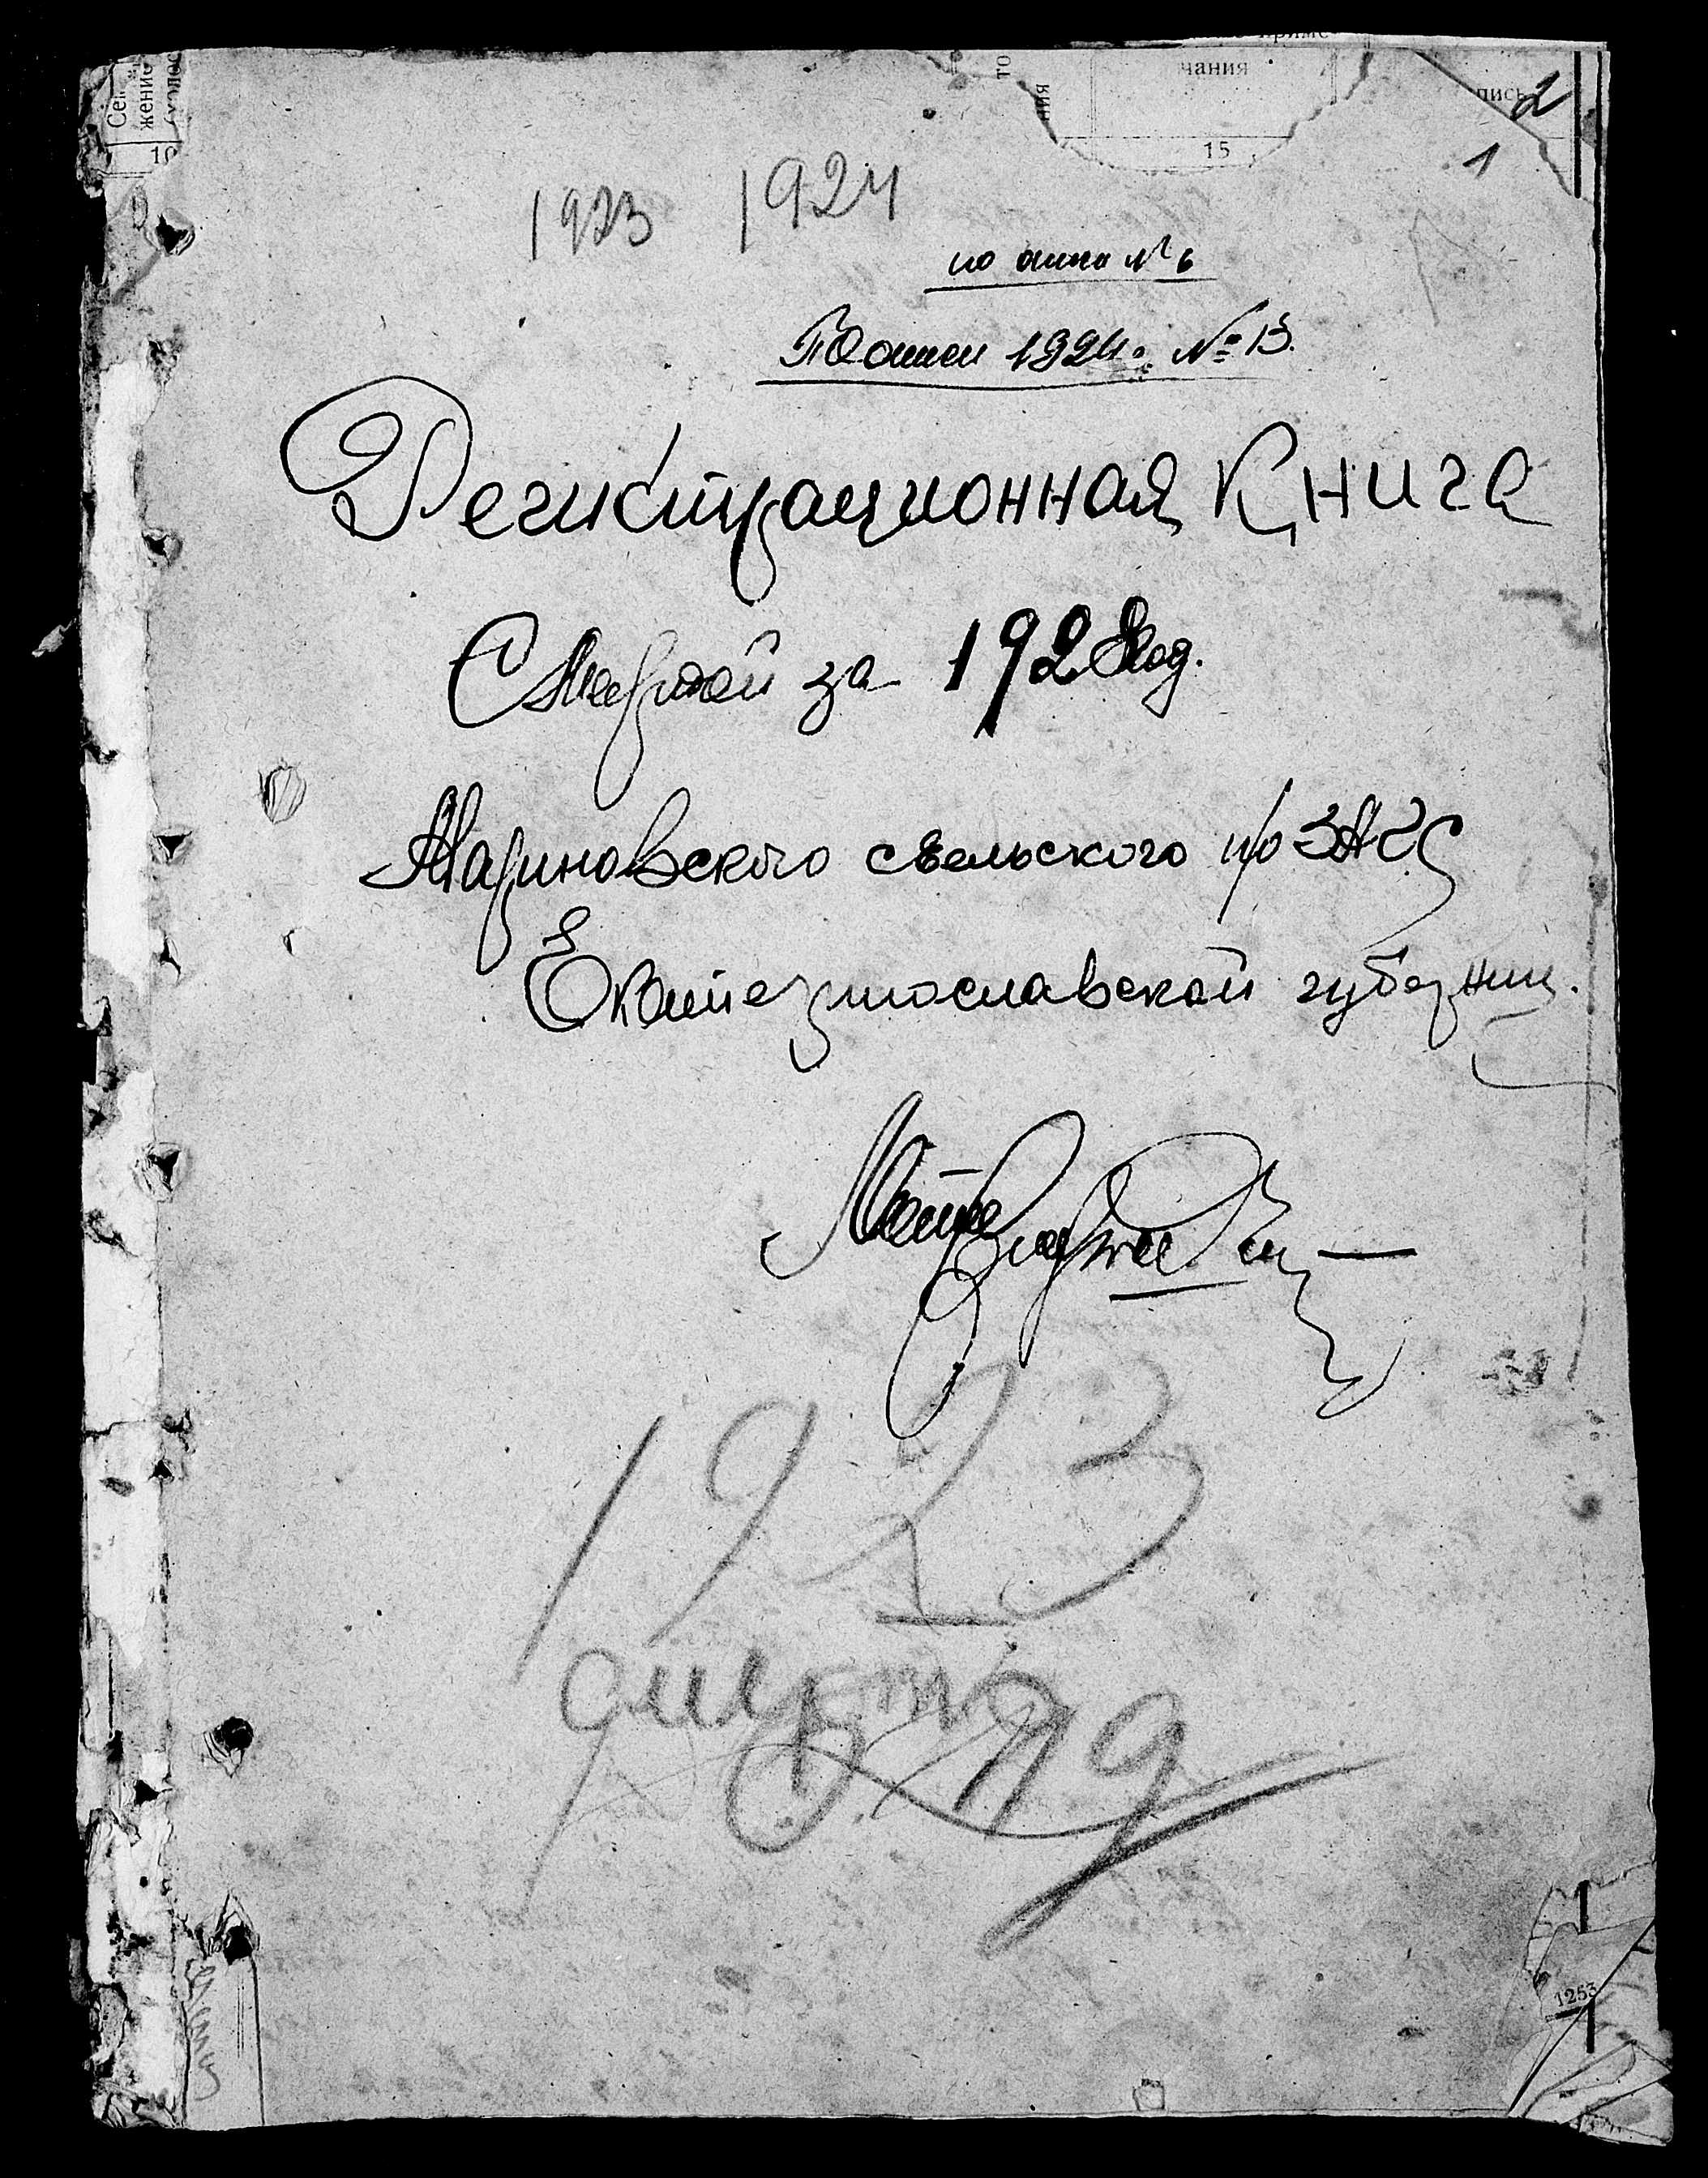 Се
жение
10
то
ния
чания
15
пись
2
1
1923 1924
по акта № 6
1924 № 13.
Регистрационная Книга
Смертей за 192 год.
Мариновского сельского п/о ЗАГС
Екатеринославской губернии.
1923
смерть
19
1253